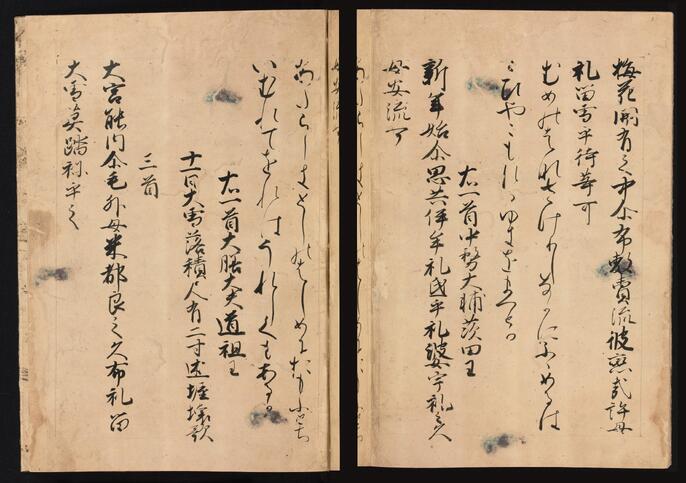 梅花開有之中尓布敷賣流彼戀哉許母
礼留雪乎待等可
むめのはなさけりしなかにふゝめるは
こひやこもれるゆきをまつとか
右一首中務大輔茨田王
新年始尓思共伊牟礼氐乎礼婆宇礼之久
母安流可
あたらしきとしのはしめにおもふとち
いむれてをれはうれしくもあるか
右一首大膳大夫道祖王
十一日大雪落積尺有二寸述拙懐歌
三首
大宮能内尓毛外母米都良之久布礼留
大雪莫踏祢乎之